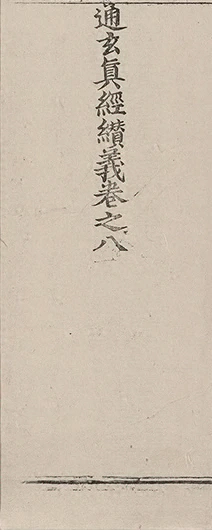 通玄真經纘義卷之八